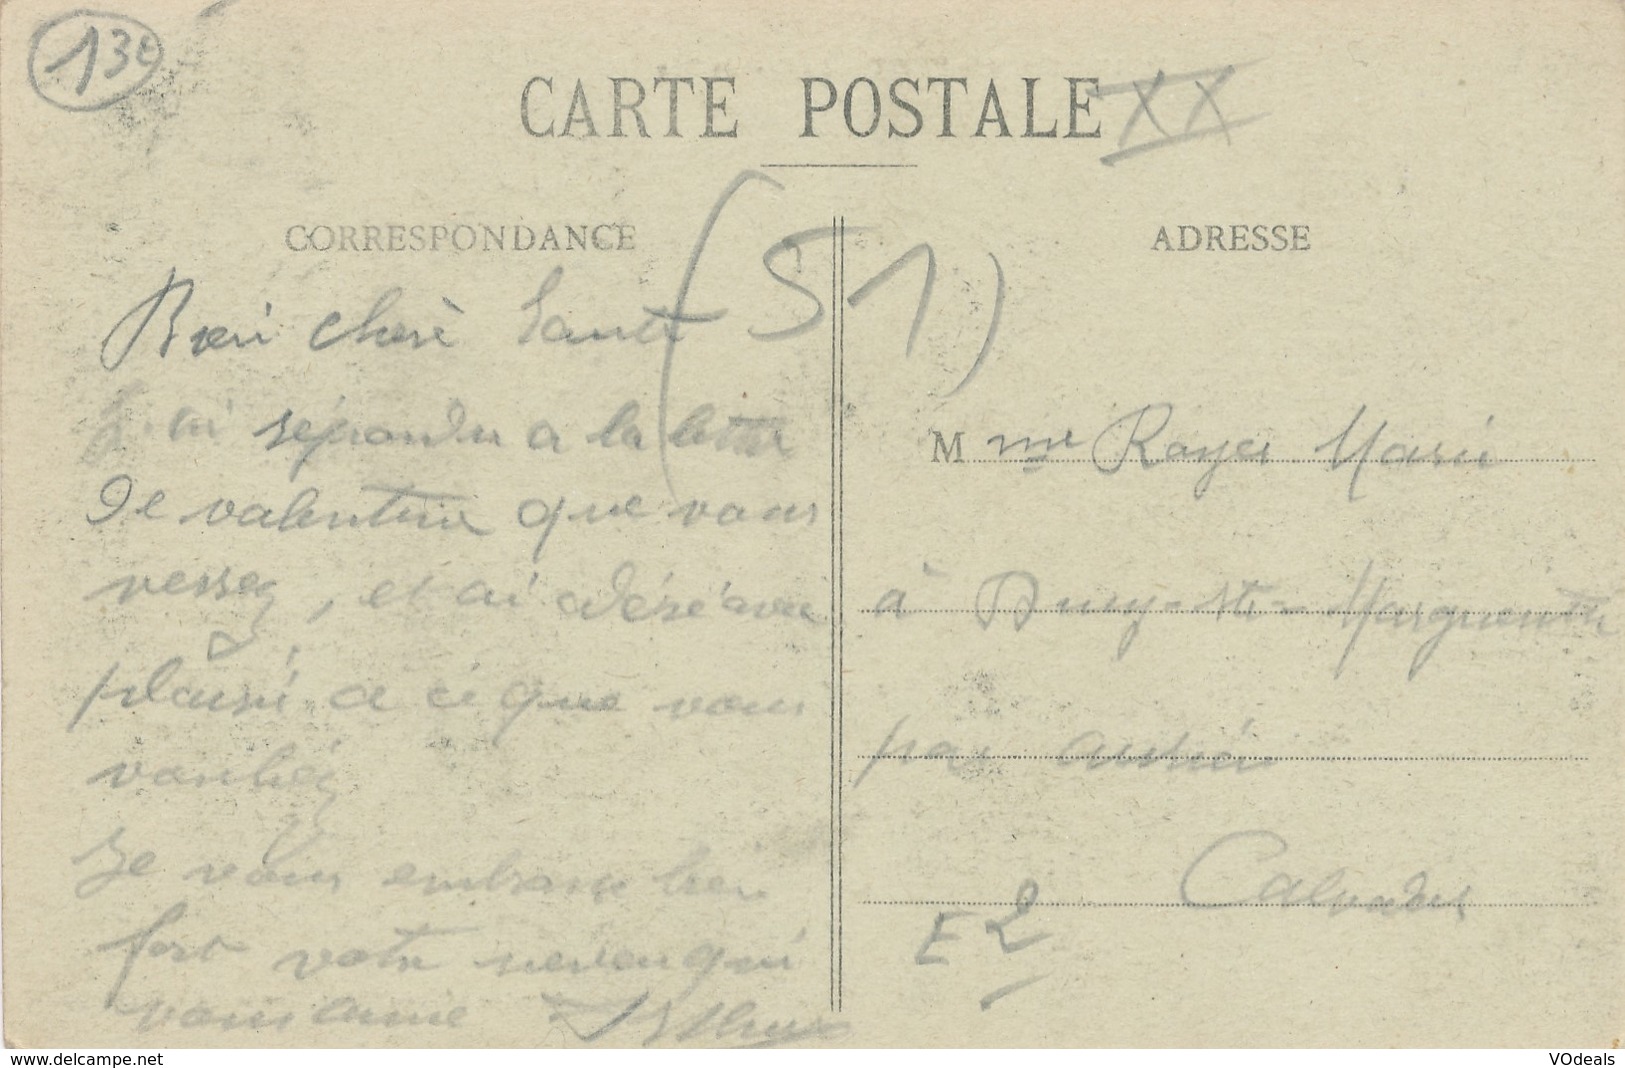 13€
CARTE POSTALE XX
CORRESPONDANCE
(51)
ADRESSE
Bien chere tante
J'ai répondu a la lettre
De valentine que vous
verrez, et ai désé avec
plaisir a ce que vous
vouliez
Je vous embrasse bien
fort votre neveu qui
vous aime Arthur
Mme Royer Marie
à Ducy-ste-Marguerite
par audrieu
Calvados
E2
www.delcampe.net
VOdeals